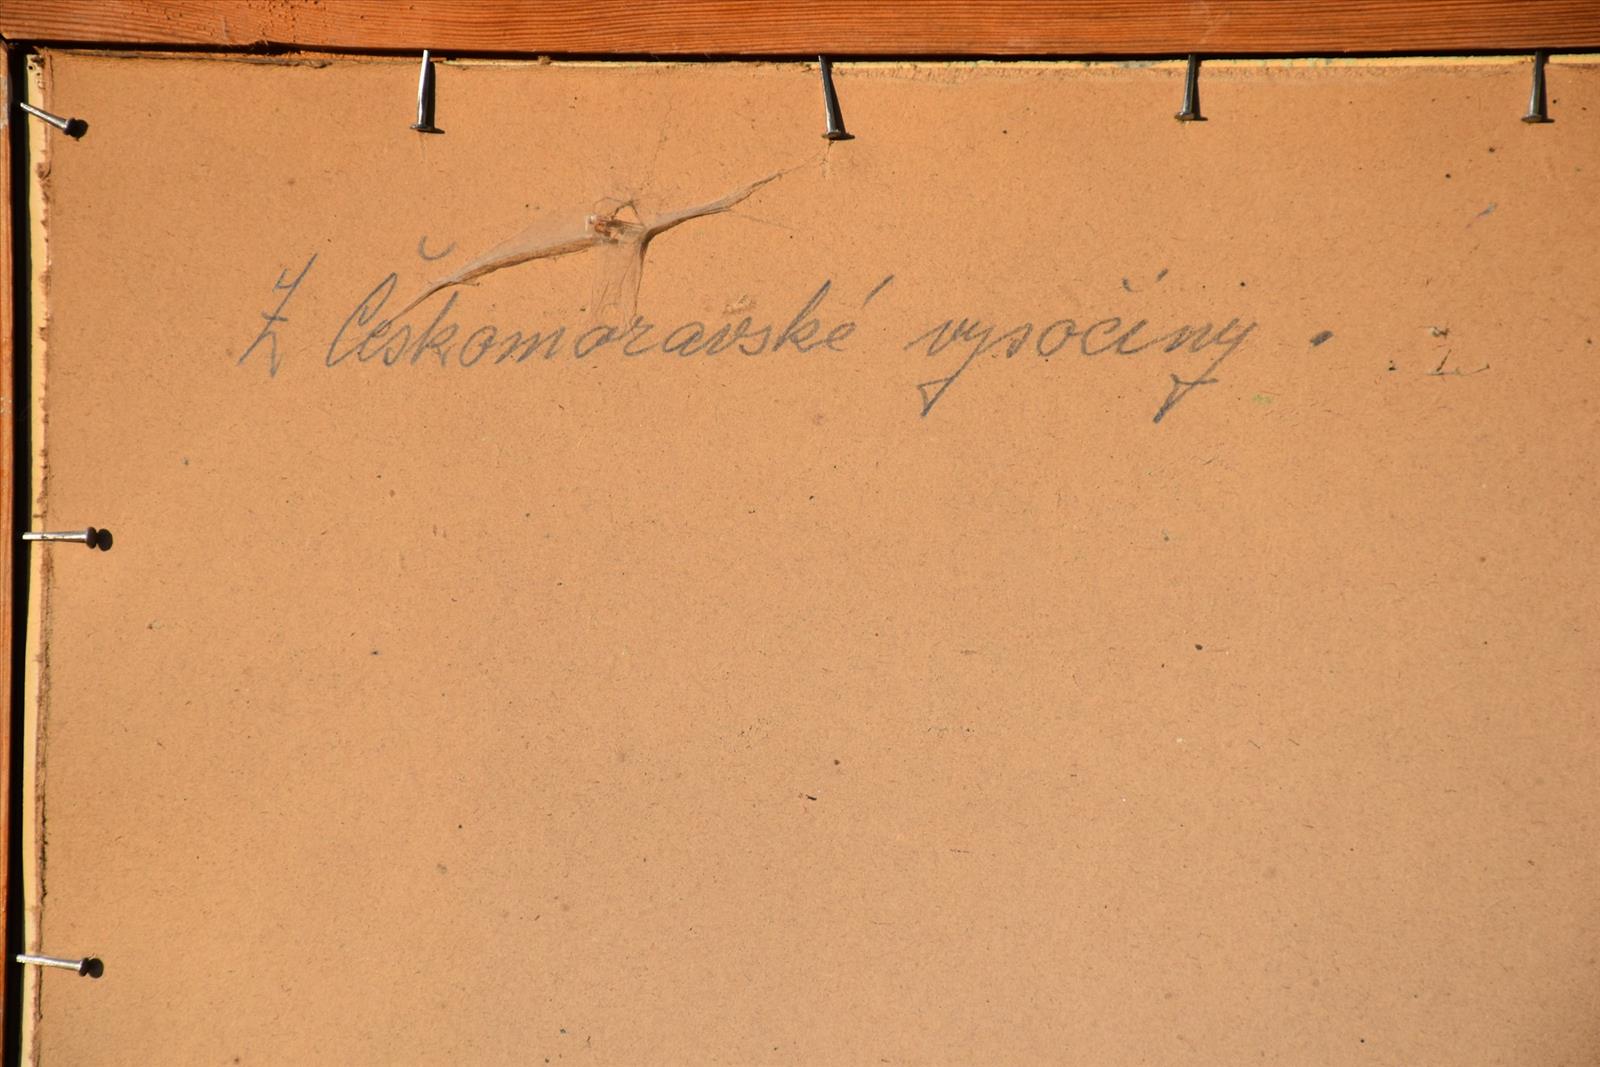 Z Českomoravské vysočiny.